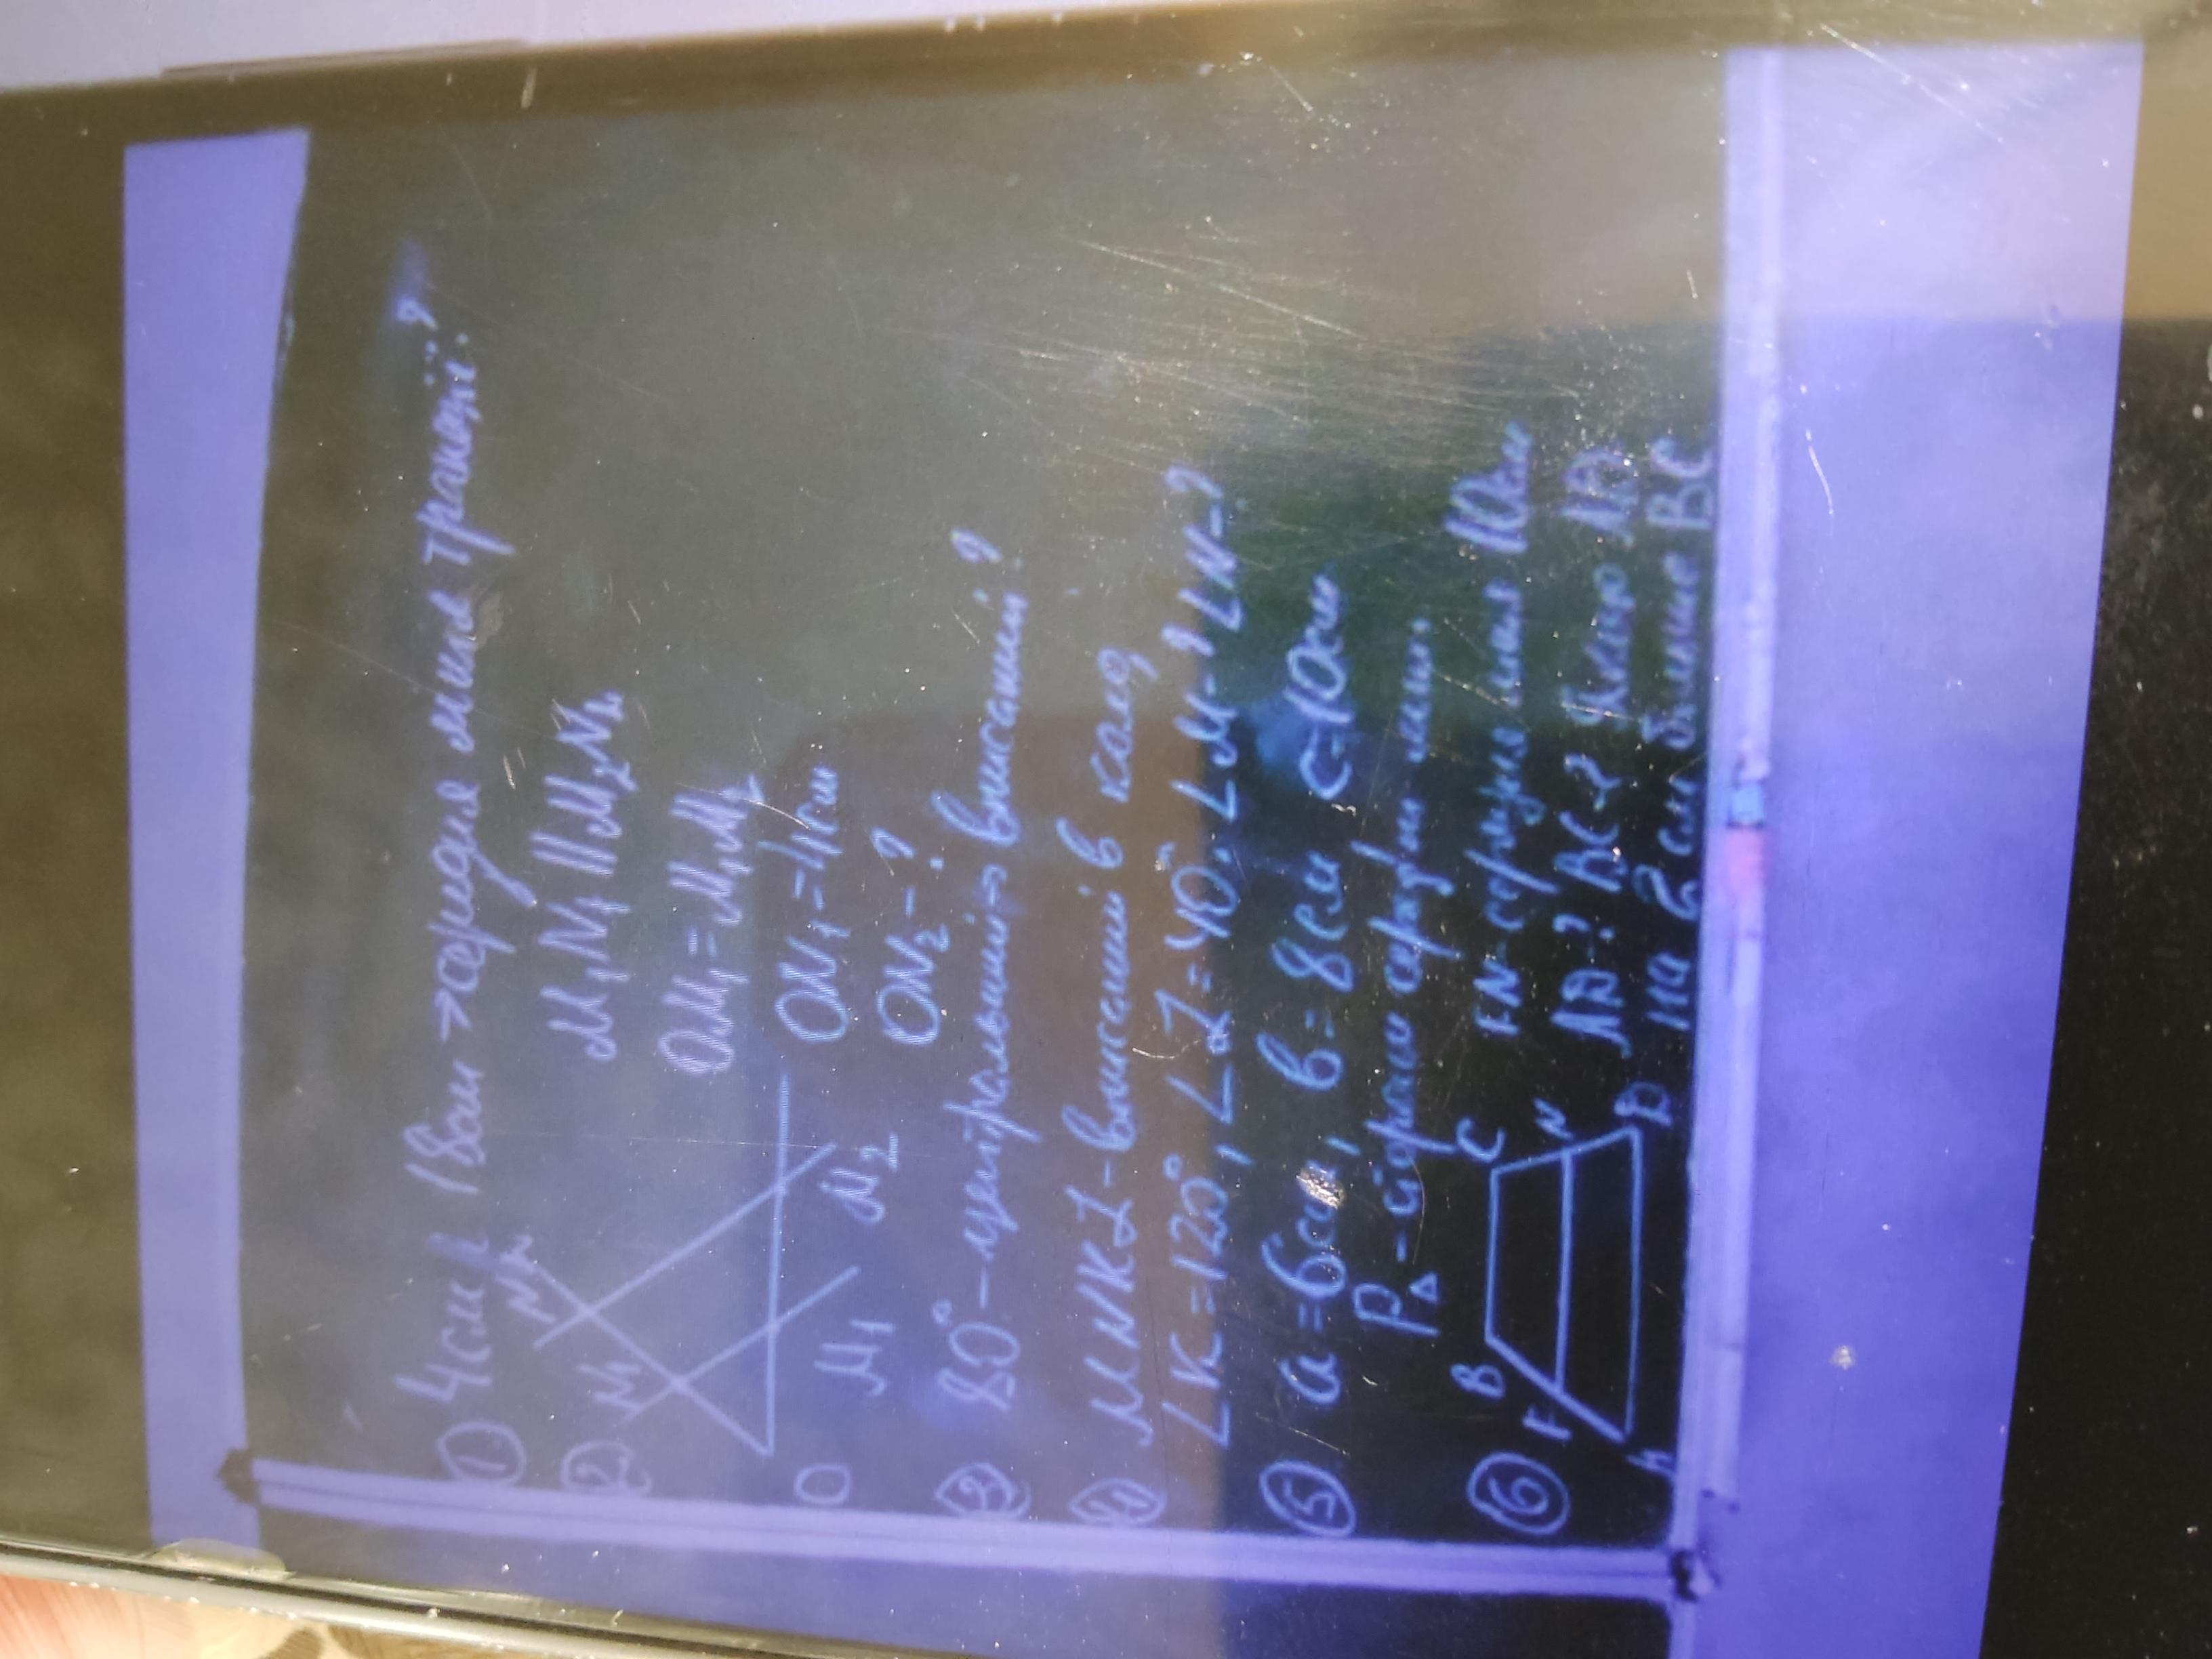 ① 4см і 18см → середня лінія трапеції?
② N₁ N₂ M₁N₁ || M₂N₂
OM₁ = M₁M₂
ON₁ = 4см
O M₁ M₂ ON₂ - ?
③ 80° - центральний → вписаний?
④ MNKL - вписаний в коло,
∠K = 120°, ∠L = 40°. ∠M - ? ∠N - ?
⑤ a = 6см, b = 8см c = 10см
P△ - сторони середні лін.
⑥ B C FN - середня лінія 10см
F N AD - ? BC - ? Якщо AD
A D на 6 см більше BC